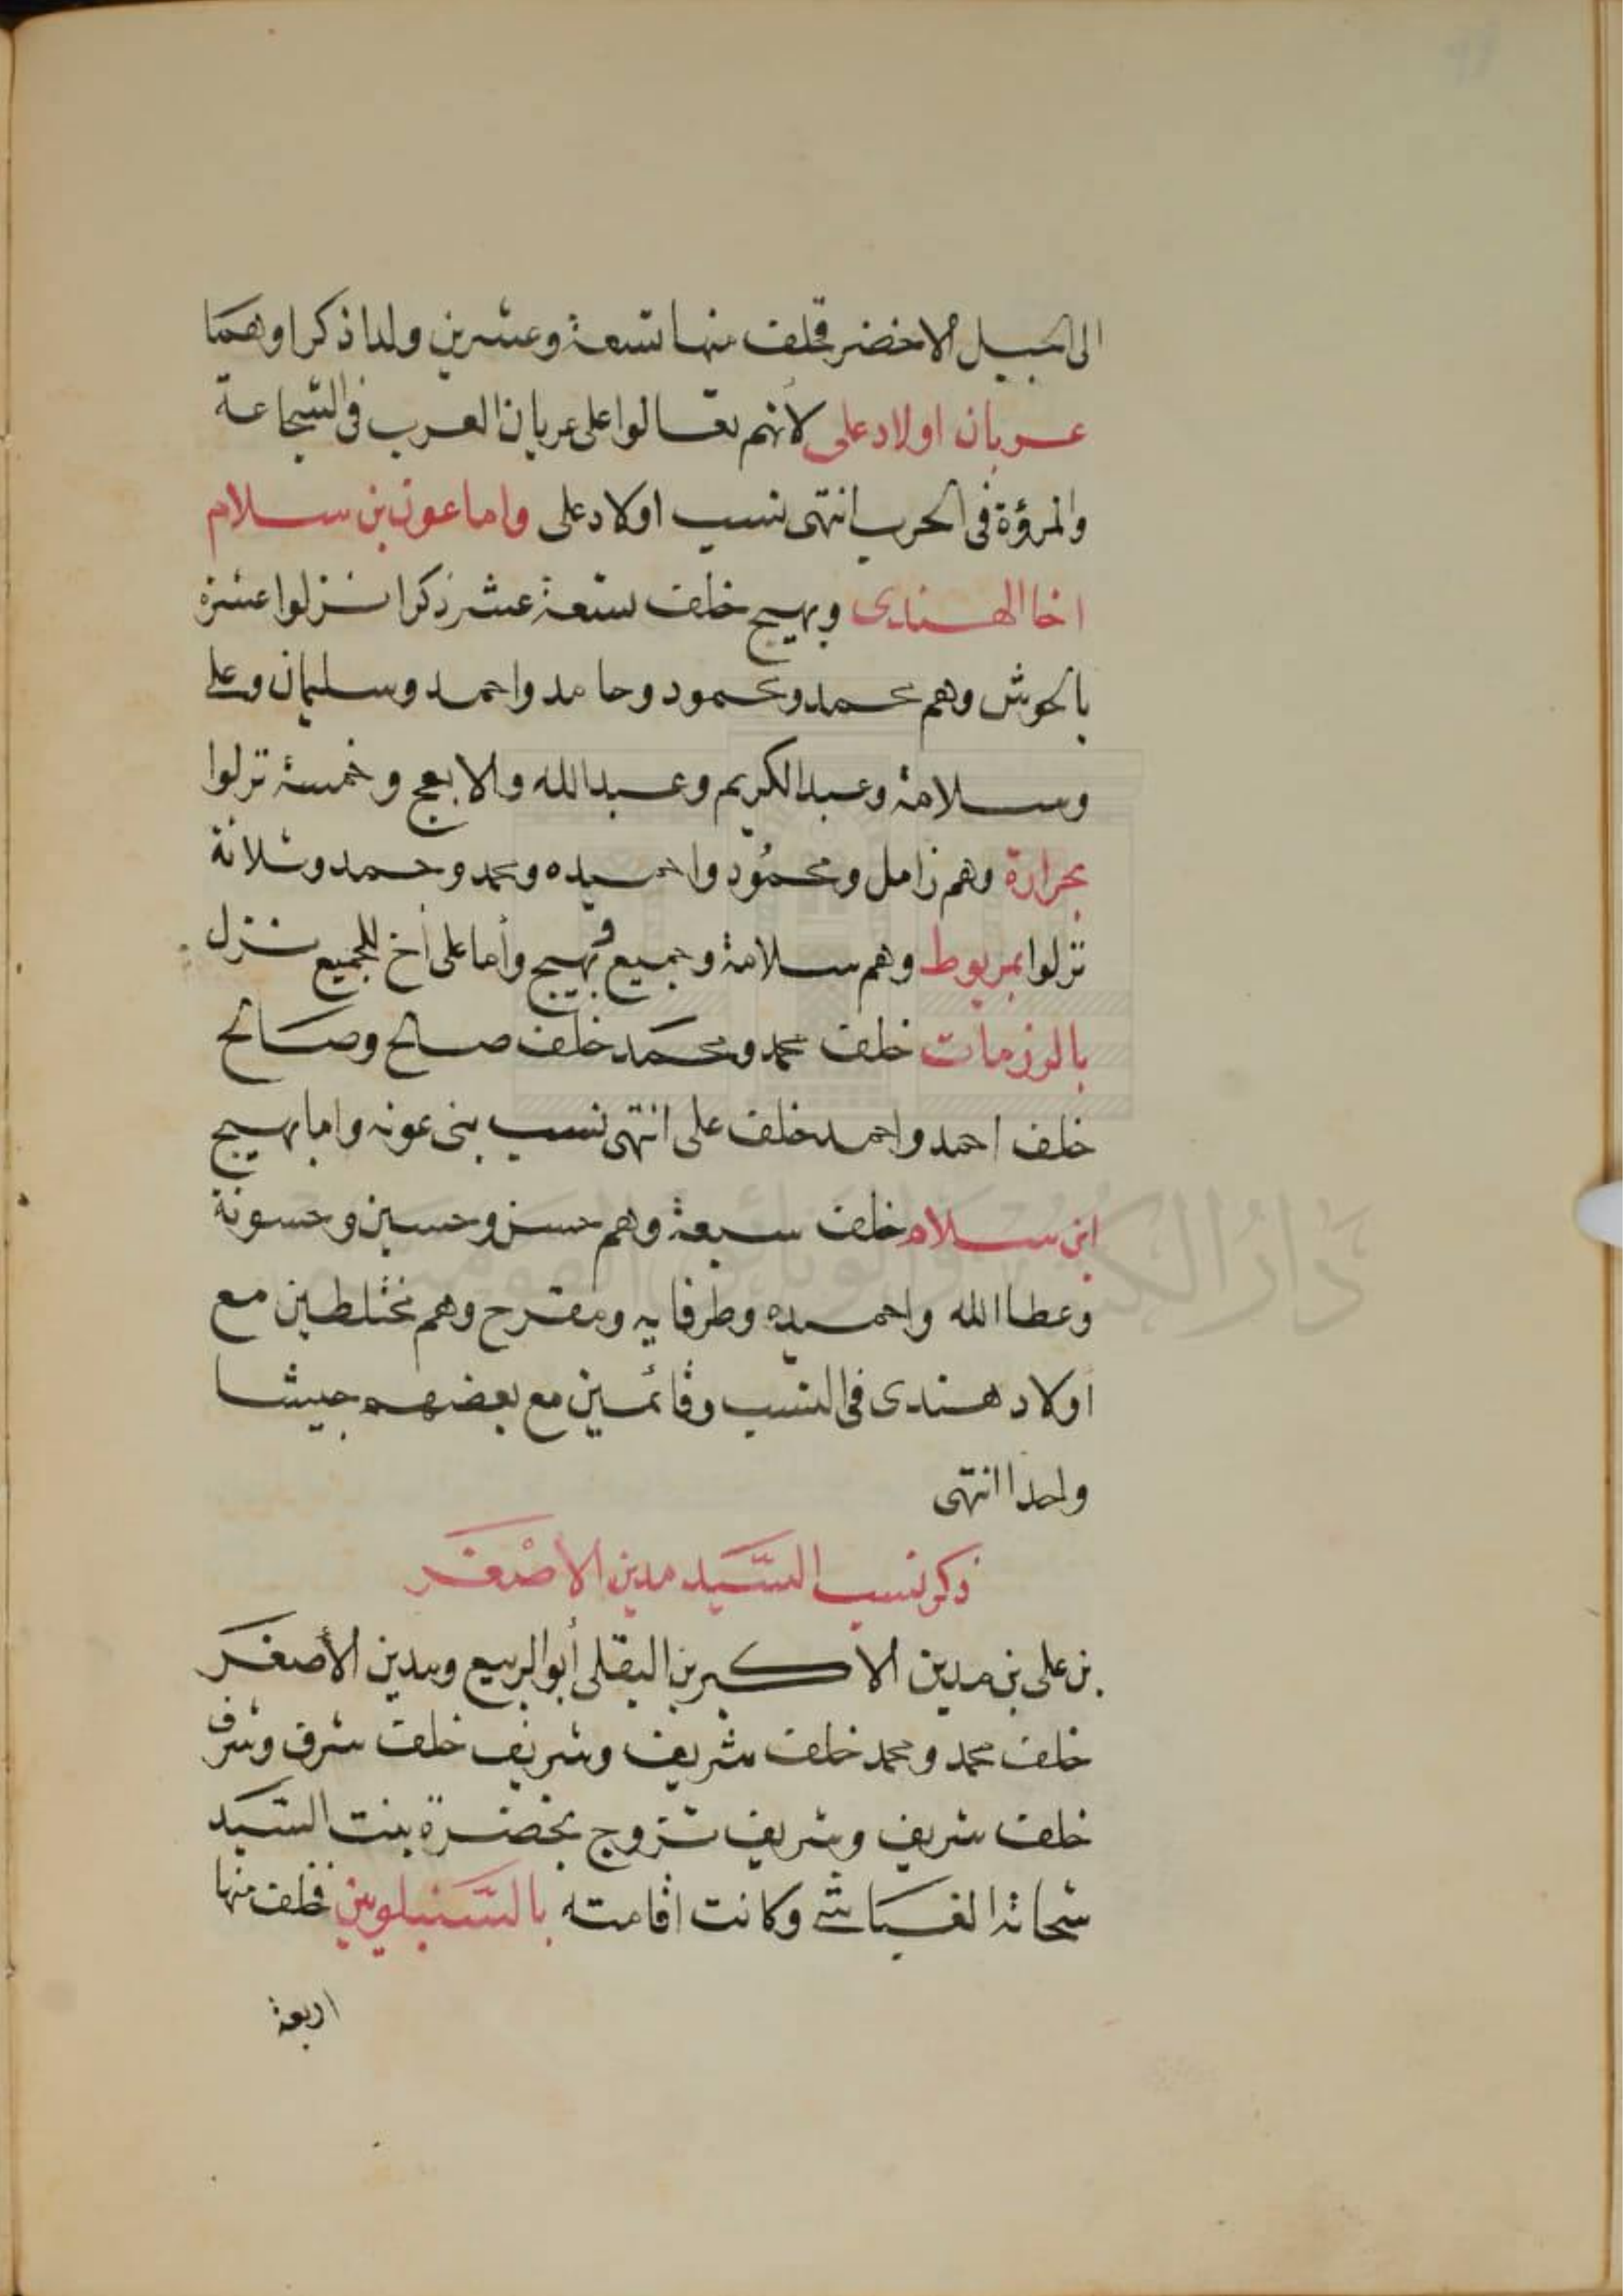 الى الجبيل الاخضر فخلف منها تسعة وعشرين ولدا ذكرا وهما
عربان اولاد على لانهم تعالوا على عربان العرب فى الشجاعة
والمرؤة فى الحرب انتهى نسب اولاد على واما عون بن سلام
اخا الهندى وبهيج خلف تسعة عشر ذكرا نزلوا عشرة
بالحوش وهم محمد ومحمود وحامد واحمد وسليمان وعلى
وسلامة وعبد الكريم وعبد الله والابعج وخمسة نزلوا
بحرارة وهم زامل ومحمود واحميده ومحمد وحمد وثلاثة
نزلوا بمريوط وهم سلامة وجميع وبهيج وأما على أخ للجميع نزل
بالرزمات خلف محمد ومحمد خلف صالح وصالح
خلف احمد واحمد خلف على انتهى نسب بنى عونه واما بهيج
ابن سلام خلف سبعة وهم حسن وحسين وحسونة
وعطا الله واحميده وطرفايه ومقرح وهم مختلطين مع
أولاد هندى فى النسب وقائمين مع بعضهم جيشا
واحدا انتهى
ذكر نسب السيد مدين الاصغر
بن على بن مدين الاكبر بن البقلى أبو الربيع ومدين الأصغر
خلف محمد ومحمد خلف شريف وشريف خلف شرف وشرف
خلف شريف وشريف تزوج بخضرة بنت السيد
شحاته الغباشى وكانت اقامته بالسنبلوين فخلف منها
اربعة
دار الكتب والوثائق القومية